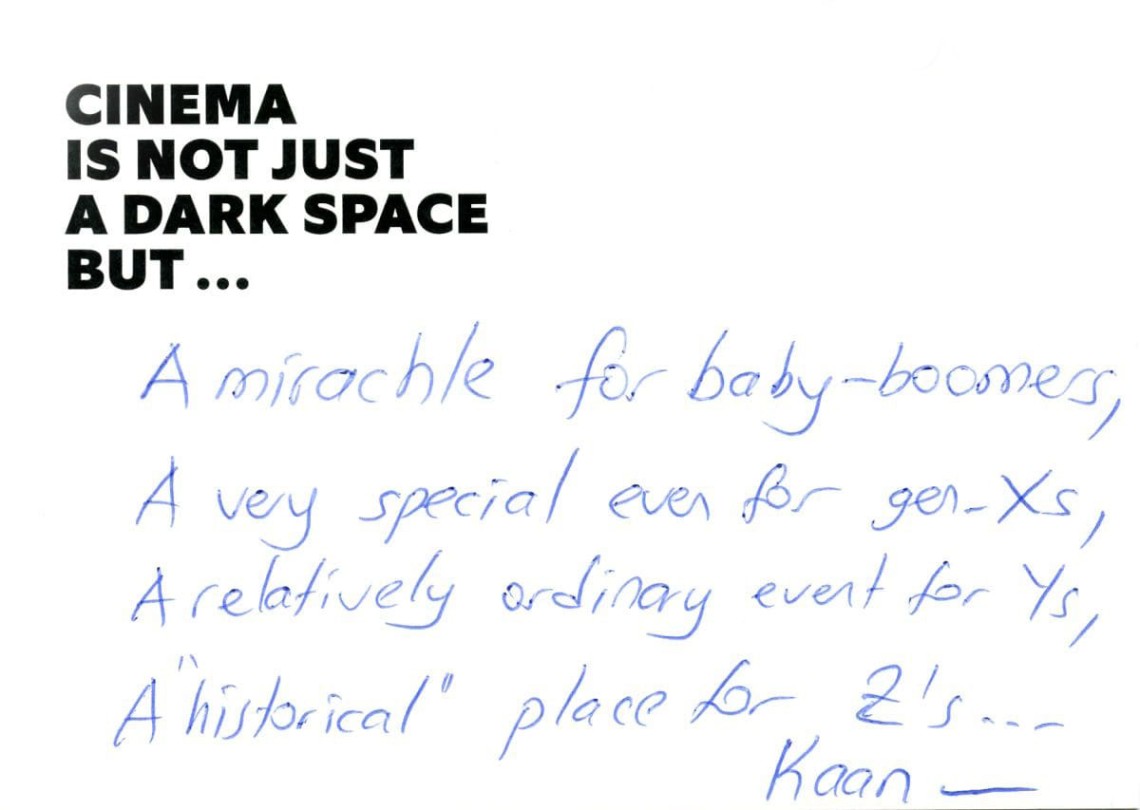 CINEMA
IS NOT JUST
A DARK SPACE
BUT ...
A mirachle for baby-boomers,
A very special even for gen-Xs,
A relatively ordinary event for Ys,
A "historical" place for Z's....
Kaan —